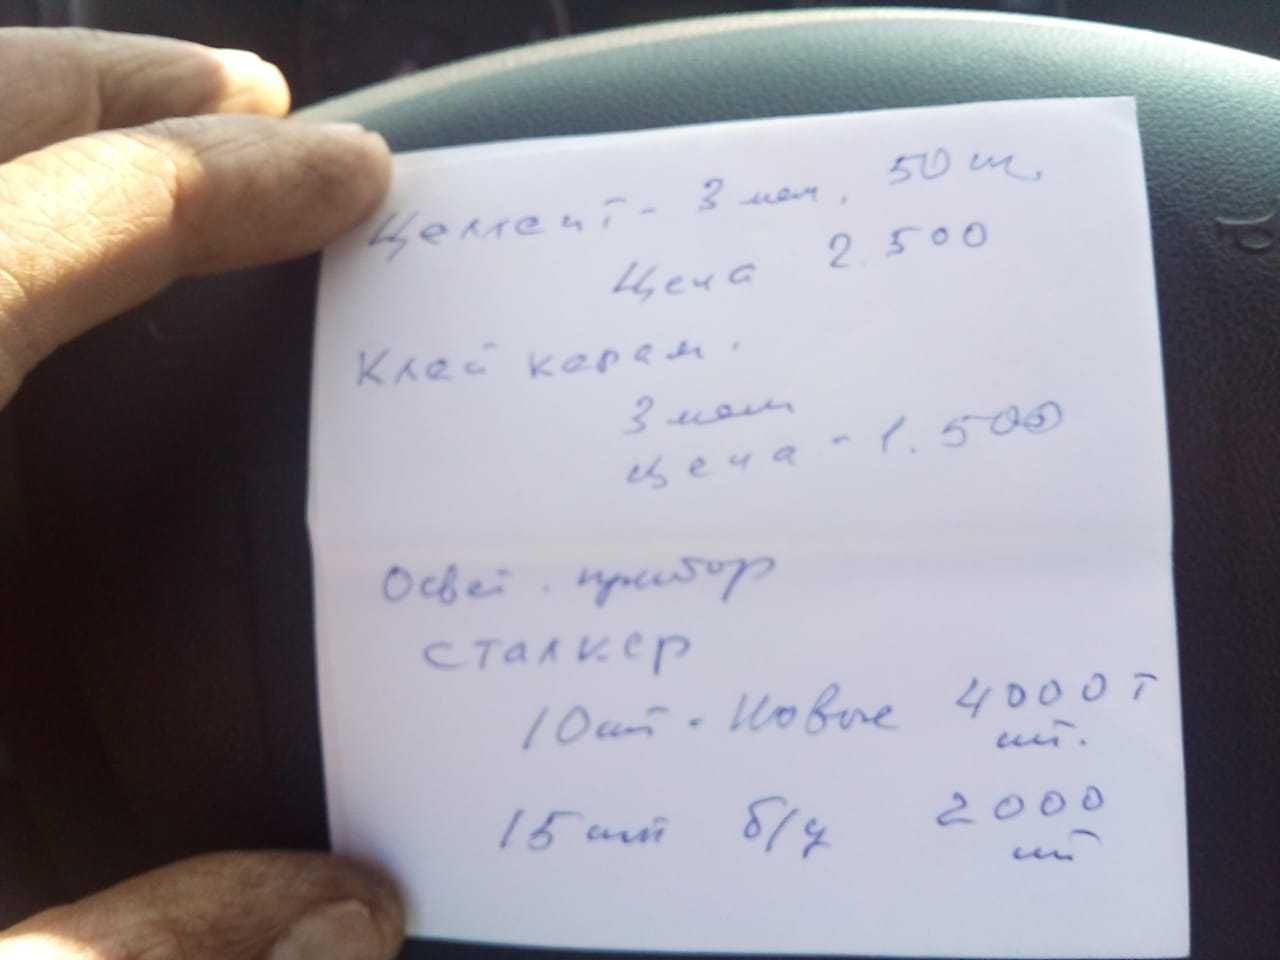 Цемент - 3 меш, 50 кг.
Цена 2.500
Клей керам.
3 меш
цена - 1.500
Освет. прибор
сталкер
10 шт - Новые 4000 т
шт.
15 шт б/у 2000
шт